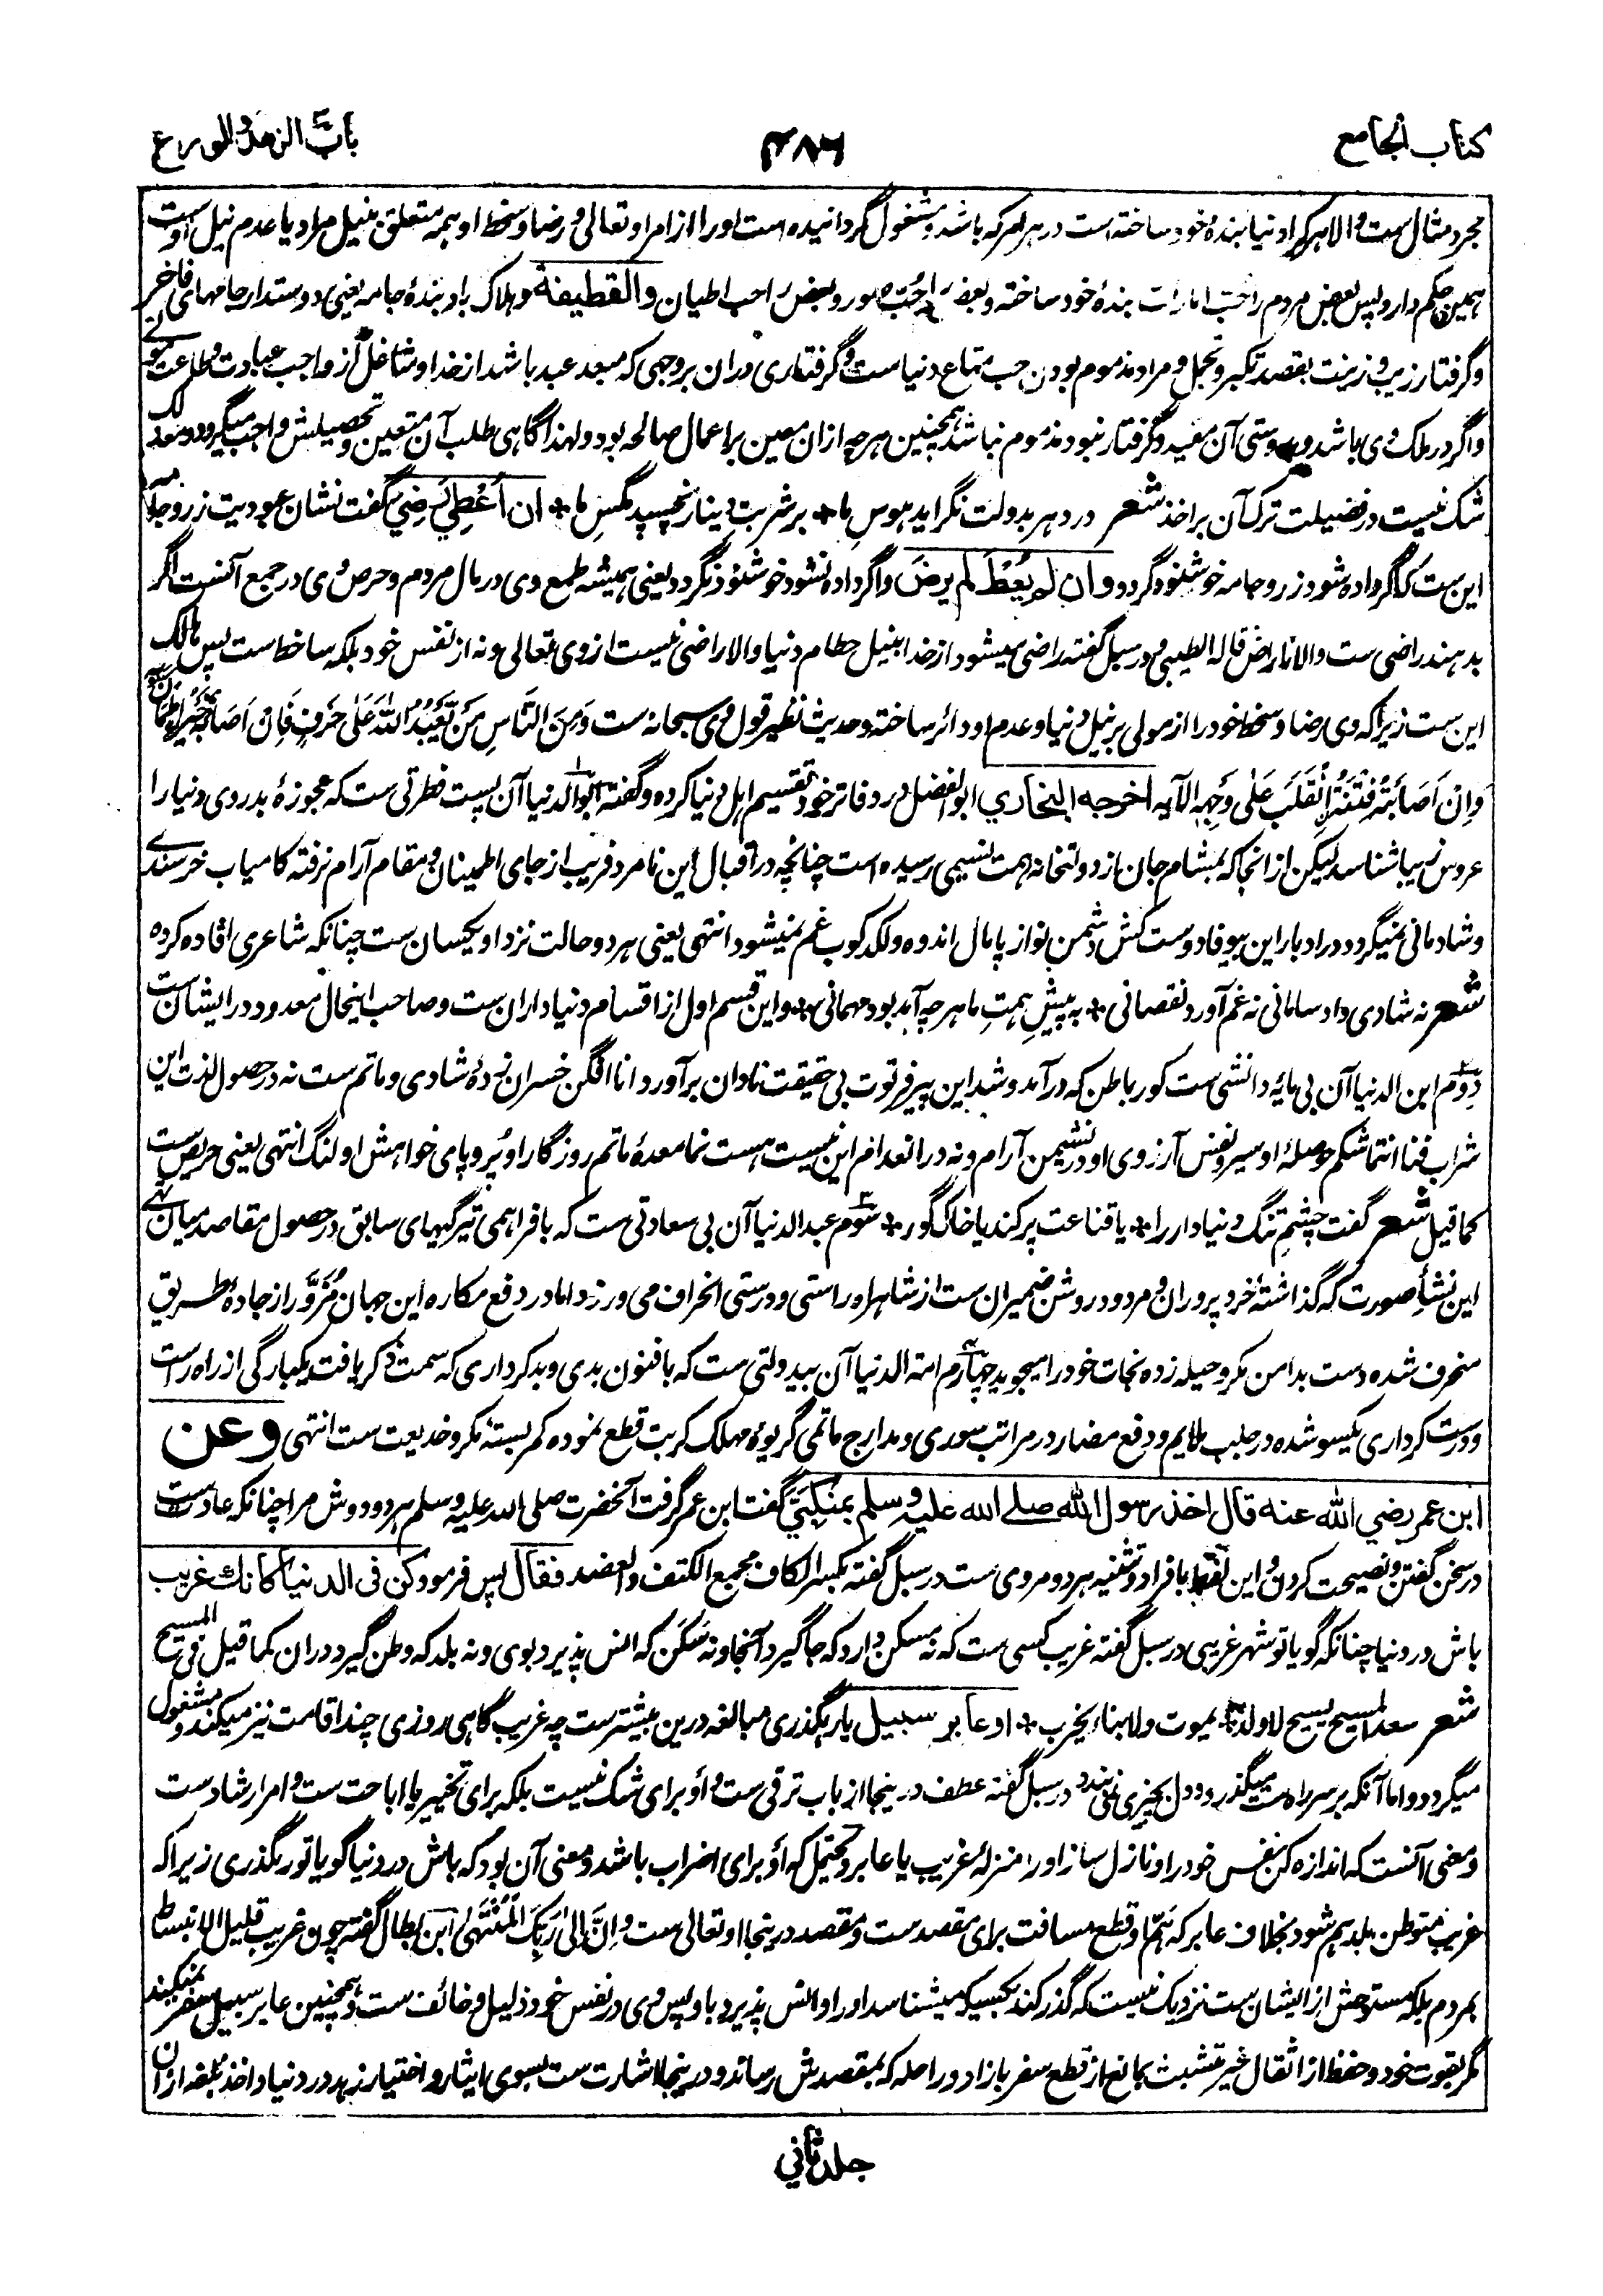 کتاب الجامع
۴۸۶
باب الزهد والورع
مجرد مثال ست و الا هرکرا دنیا بندهٔ خود ساخته است در هر امر که باشد و مشغول گردانیده است او را از امر او تعالی و رضا و سخط او همه متعلق بنیل مراد یا عدم نیل اوست
همین حکم دارد پس بعض مردم را حب امارات بندهٔ خود ساخته و بعض را حب صور و بعض را حب اطیان والقطیفة و هلاک باد بندهٔ جامه یعنی دوستدار جامهای فاخر
و گرفتار زیب و زینت بقصد تکبر و تجمل و مراد مذموم بودن حب متاع دنیاست و گرفتاری دران بر وجهی که مبعد عبد باشد از خدا و شاغل از واجب عبادت و طاعت
و اگر در ملک وی باشد و دوستی آن مقید و گرفتار نبود مذموم نباشد همچنین هرچه ازان معین بر اعمال صالحه بود و لهذا گاهی طلب آن متعین و تحصیلش واجب میگردد و معذلک
شک نیست در فضیلت ترک آن بر اخذ شعر در دهر بدولت نگراید هوسِ ما * بر شربت دینار نچسپد مگسِ ما * ان اُعْطِيَ رَضِيَ گفت نشان عبودیت زر و جامه
این ست که اگر داده شود زر و جامه خوشنود گردد و ان لم یُعْطَ لم یرضَ و اگر داده نشود خوشنود نگردد یعنی همیشه طمع وی در مال مردم و حرص وی در جمع آنست اگر
بدهند راضی ست و الا ناراض قاله الطیبی و در سبل گفته راضی میشود از خدا بنیل حطام دنیا و الا راضی نیست از وی تعالی و نه از نفس خود بلکه ساخط ست پس هالک
این ست زیراکه وی رضا و سخط خود را از مولی بر نیل دنیا و عدم او دائر ساخته و حدیث نظیر قول وی سبحانه ست وَمِنَ النَّاسِ مَنْ یَّعْبُدُ اللّٰهَ عَلٰی حَرْفٍ فَاِنْ اَصَابَهٗ خَیْرُ اِطْمَاَنَّ بِهٖ
وَاِنْ اَصَابَتْهُ فِتْنَةُ انْقَلَبَ عَلٰی وَجْهِهٖ الآیه اخرجه البخاري ابوالفضل در دفاتر خود تقسیم اهل دنیا کرده و گفته ابوالدنیا آن پست فطرتی ست که عجوزهٔ بدروی دنیا را
عروس زیبا شناسد لیکن ازانجاکه بمشام جان از دولتخانه همت نسیمی رسیده است چنانچه در اقبال این نامرد فریب از جای اطمینان و مقام آرام نرفته کامیاب خرسندے
و شادمانی نمیگردد در ادبار این بیوفا دوست کش دشمن نواز پامال اندوه و لکدکوب غم نمیشود انتهی یعنی هر دو حالت نزد او یکسان ست چنانکه شاعری افاده کرده
شعر نه شادی داد سامانی نه غم آورد نقصانی * به پیشِ همتِ ما هرچه آمد بود مهمانی * و این قسم اول از اقسام دنیاداران ست و صاحب اینحال معدود در ایشان ست
دوم ابن الدنیا آن بی مایه دانشی ست کور باطن که در آمد و شد این پیر فرتوت بی حقیقت نادان برآور دانا افگن خسران زدهٔ شادی و ماتم ست نه در حصول لذت این
شراب فنا انتما شکم حوصلهٔ او سیر و نفس آرزوی او در نشیمن آرام و نه در انعدام این نیست هست نما معدهٔ ماتم روزگار او پر و پای خواهش او لنگ انتهی یعنی حریص ست
کما قیل شعر گفت چشمِ تنگ دنیادار را * یا قناعت پر کند یا خاک گور * سوم عبدالدنیا آن بی سعادتی ست که با فراهمی تیرگیهای سابق در حصول مقاصد میان تهے
این نشأ صورت که گذاشتهٔ خرد پروران و مردود روشن ضمیران ست از شاهراه راستی و درستی انحراف می ورزد اما در دفع مکاره این جهان مُزَوَّر از جادهٔ طریق
منحرف شده دست بدامن مکر و حیله زده نجات خود را میجوید چهارم امة الدنیا آن بیدولتی ست که با فنون بدی و بدکرداری که سمت ذکر یافت یکبارگی از راه راست
و درست کرداری یکسو شده در جلب ملایم و دفع مضار در مراتب سوری و مدارج ماتمی گریوهٔ مهلک کربت قطع نموده کمر بستهٔ مکر و خدیعت ست انتهی وعن
ابن عمر رضي الله عنه قال اخذ رسول الله صلے الله علیه وسلم بمنکبيَّ گفت ابن عمر گرفت آنحضرت صلی الله علیه وسلم هر دو دوش مرا چنانکه عادت ست
در سخن گفتن و نصیحت کردن و این لفظ بافراد و تثنیه هر دو مروی ست در سبل گفته بکسر الکاف مجمع الکتف والعضد فقال پس فرمود کن فی الدنیا کانك غریب
باش در دنیا چنانکه گویا تو شهر غریبی در سبل گفته غریب کسی ست که نه مسکن دارد که جا گیرد آنجا و نه سَکَن که انس پذیرد بوی و نه بلد که وطن گیرد دران کما قیل فی المسیح
شعر سعد المسیح یسیح لا ولد * یموت ولا بناء یخرب * او عابر سبیل یا رهگذری مبالغه درین بیشترست چه غریب گاهی روزی چند اقامت نیز میکند و مشغول
میگردد و اما آنکه بر سر راه ست میگذرد و دل بچیزی نمی بندد در سبل گفته عطف درینجا از باب ترقی ست و أو برای شک نیست بلکه برای تخییر یا اباحت ست و امر ارشادست
و معنی آنست که اندازه کن نفس خود را و نازل ساز او را منزلهٔ غریب یا عابر و یحتمل که أو برای اضراب باشد و معنی آن بود که باش در دنیا گویا تو رهگذری زیراکه
غریب متوطن بلد هم شود بخلاف عابر که هَمِّ او قطع مسافت برای مقصدست و مقصد درینجا او تعالی ست وَاِنَّ اِلٰی رَبِّکَ الْمُنْتَهٰی ابن بطال گفته چون غریب قلیل الانبساط
بمردم بلکه مستوحش از ایشان ست نزدیک نیست که گذر کند بکسیکه میشناسد او را و انس پذیرد باو پس وی در نفس خود ذلیل و خائف ست و همچنین عابر سبیل سفر نمیکند
مگر بقوت خود و خفظ از اثقال غیر متشبث بمانع از قطع سفر بازاد و راحله که بمقصدش رساند و درینجا اشارت ست بسوی ایثار و اختیار زهد در دنیا و اخذ بلغه ازان
جلد ثاني